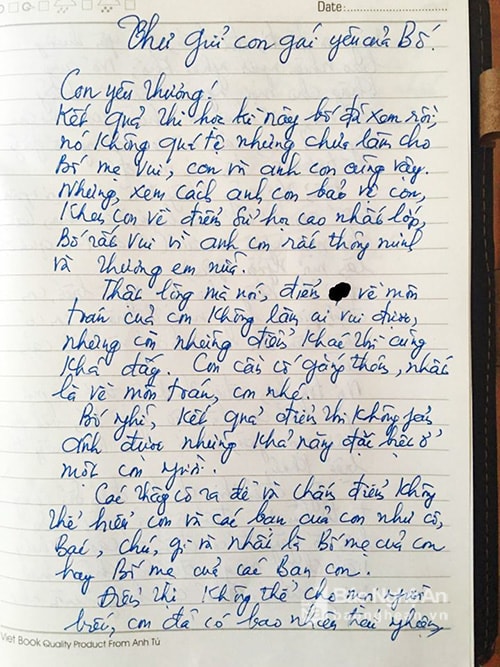 Date:
Thư gửi con gái yêu của Bố.
Con yêu thương!
Kết quả thi học kì này bố đã xem rồi,
nó không quá tệ nhưng chưa làm cho
Bố mẹ vui, con và anh con cũng vậy.
Nhưng, xem cách anh con bảo vệ con,
khen con về điểm sử học cao nhất lớp,
Bố rất vui vì anh con rất thông minh
và thương em nữa.
Thật lòng mà nói, điểm về môn
toán của con không làm ai vui được,
nhưng còn những điểm khác thì cũng
khá đấy. Con cần cố gắng thêm, nhất
là về môn toán, con nhé.
Bố nghĩ, kết quả điểm thi không phản
ánh được những khả năng đặc biệt ở
một con người.
Các thầy cô ra đề và chấm điểm không
thể hiểu con và các bạn của con như cô,
Bác, chú, gì và nhất là Bố mẹ của con
hay Bố mẹ của các Bạn con.
Điểm thi không thể cho mọi người
biết, con đã có bao nhiêu tiếu nghiêng
Báo Nghệ An
baonghean.vn
Viet Book Quality Product From Anh Tú